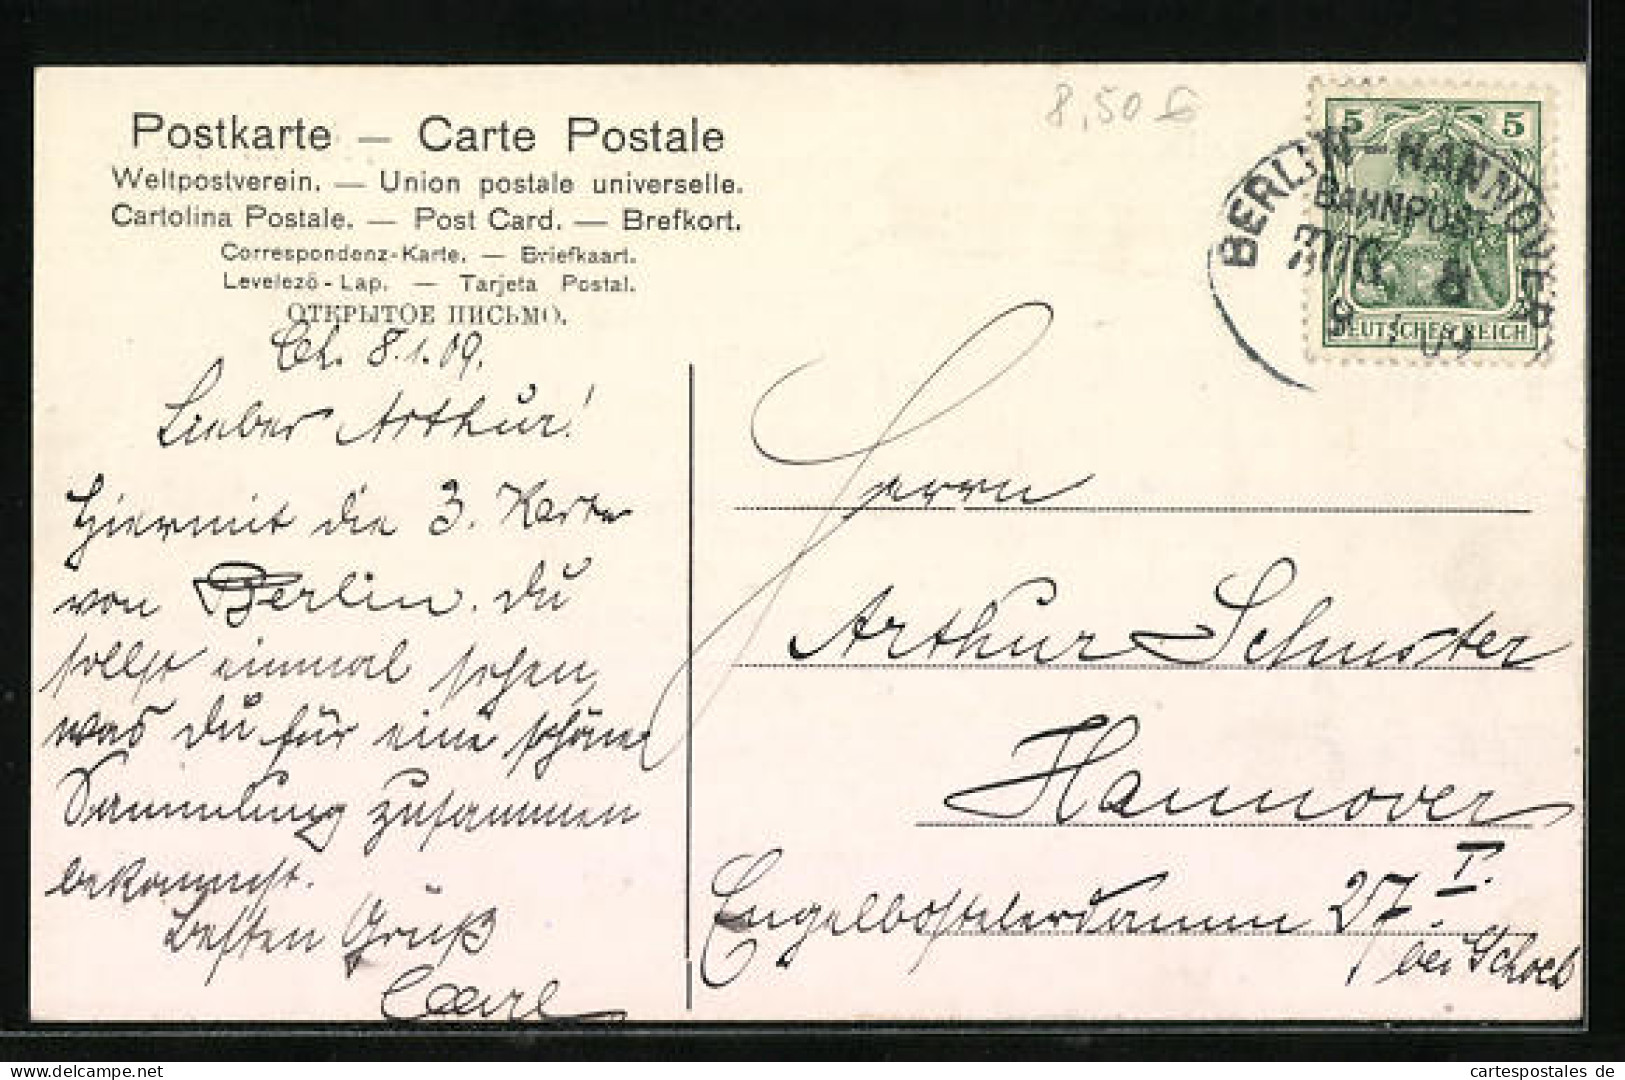 Postkarte — Carte Postale
Weltpostverein. — Union postale universelle.
Cartolina Postale. — Post Card. — Brefkort.
Correspondenz-Karte. — Briefkaart.
Levelező-Lap. — Tarjeta Postal.
ОТКРЫТОЕ ПИСЬМО.
8.1.09.
Lieber Arthur!
Hiermit die 3. Karte
von Berlin. Du
sollst einmal sehen,
was Du für eine schöne
Sammlung zusammen
bekommst.
Besten Gruß
Carl
8,50
5 5
DEUTSCHES REICH
BERLIN-HANNOVER
BAHNPOST
ZUG 8
8 1 09
Herrn
Arthur Schuster
Hannover
Engelbostelerdamm 27 I.
bei
cartespostales de